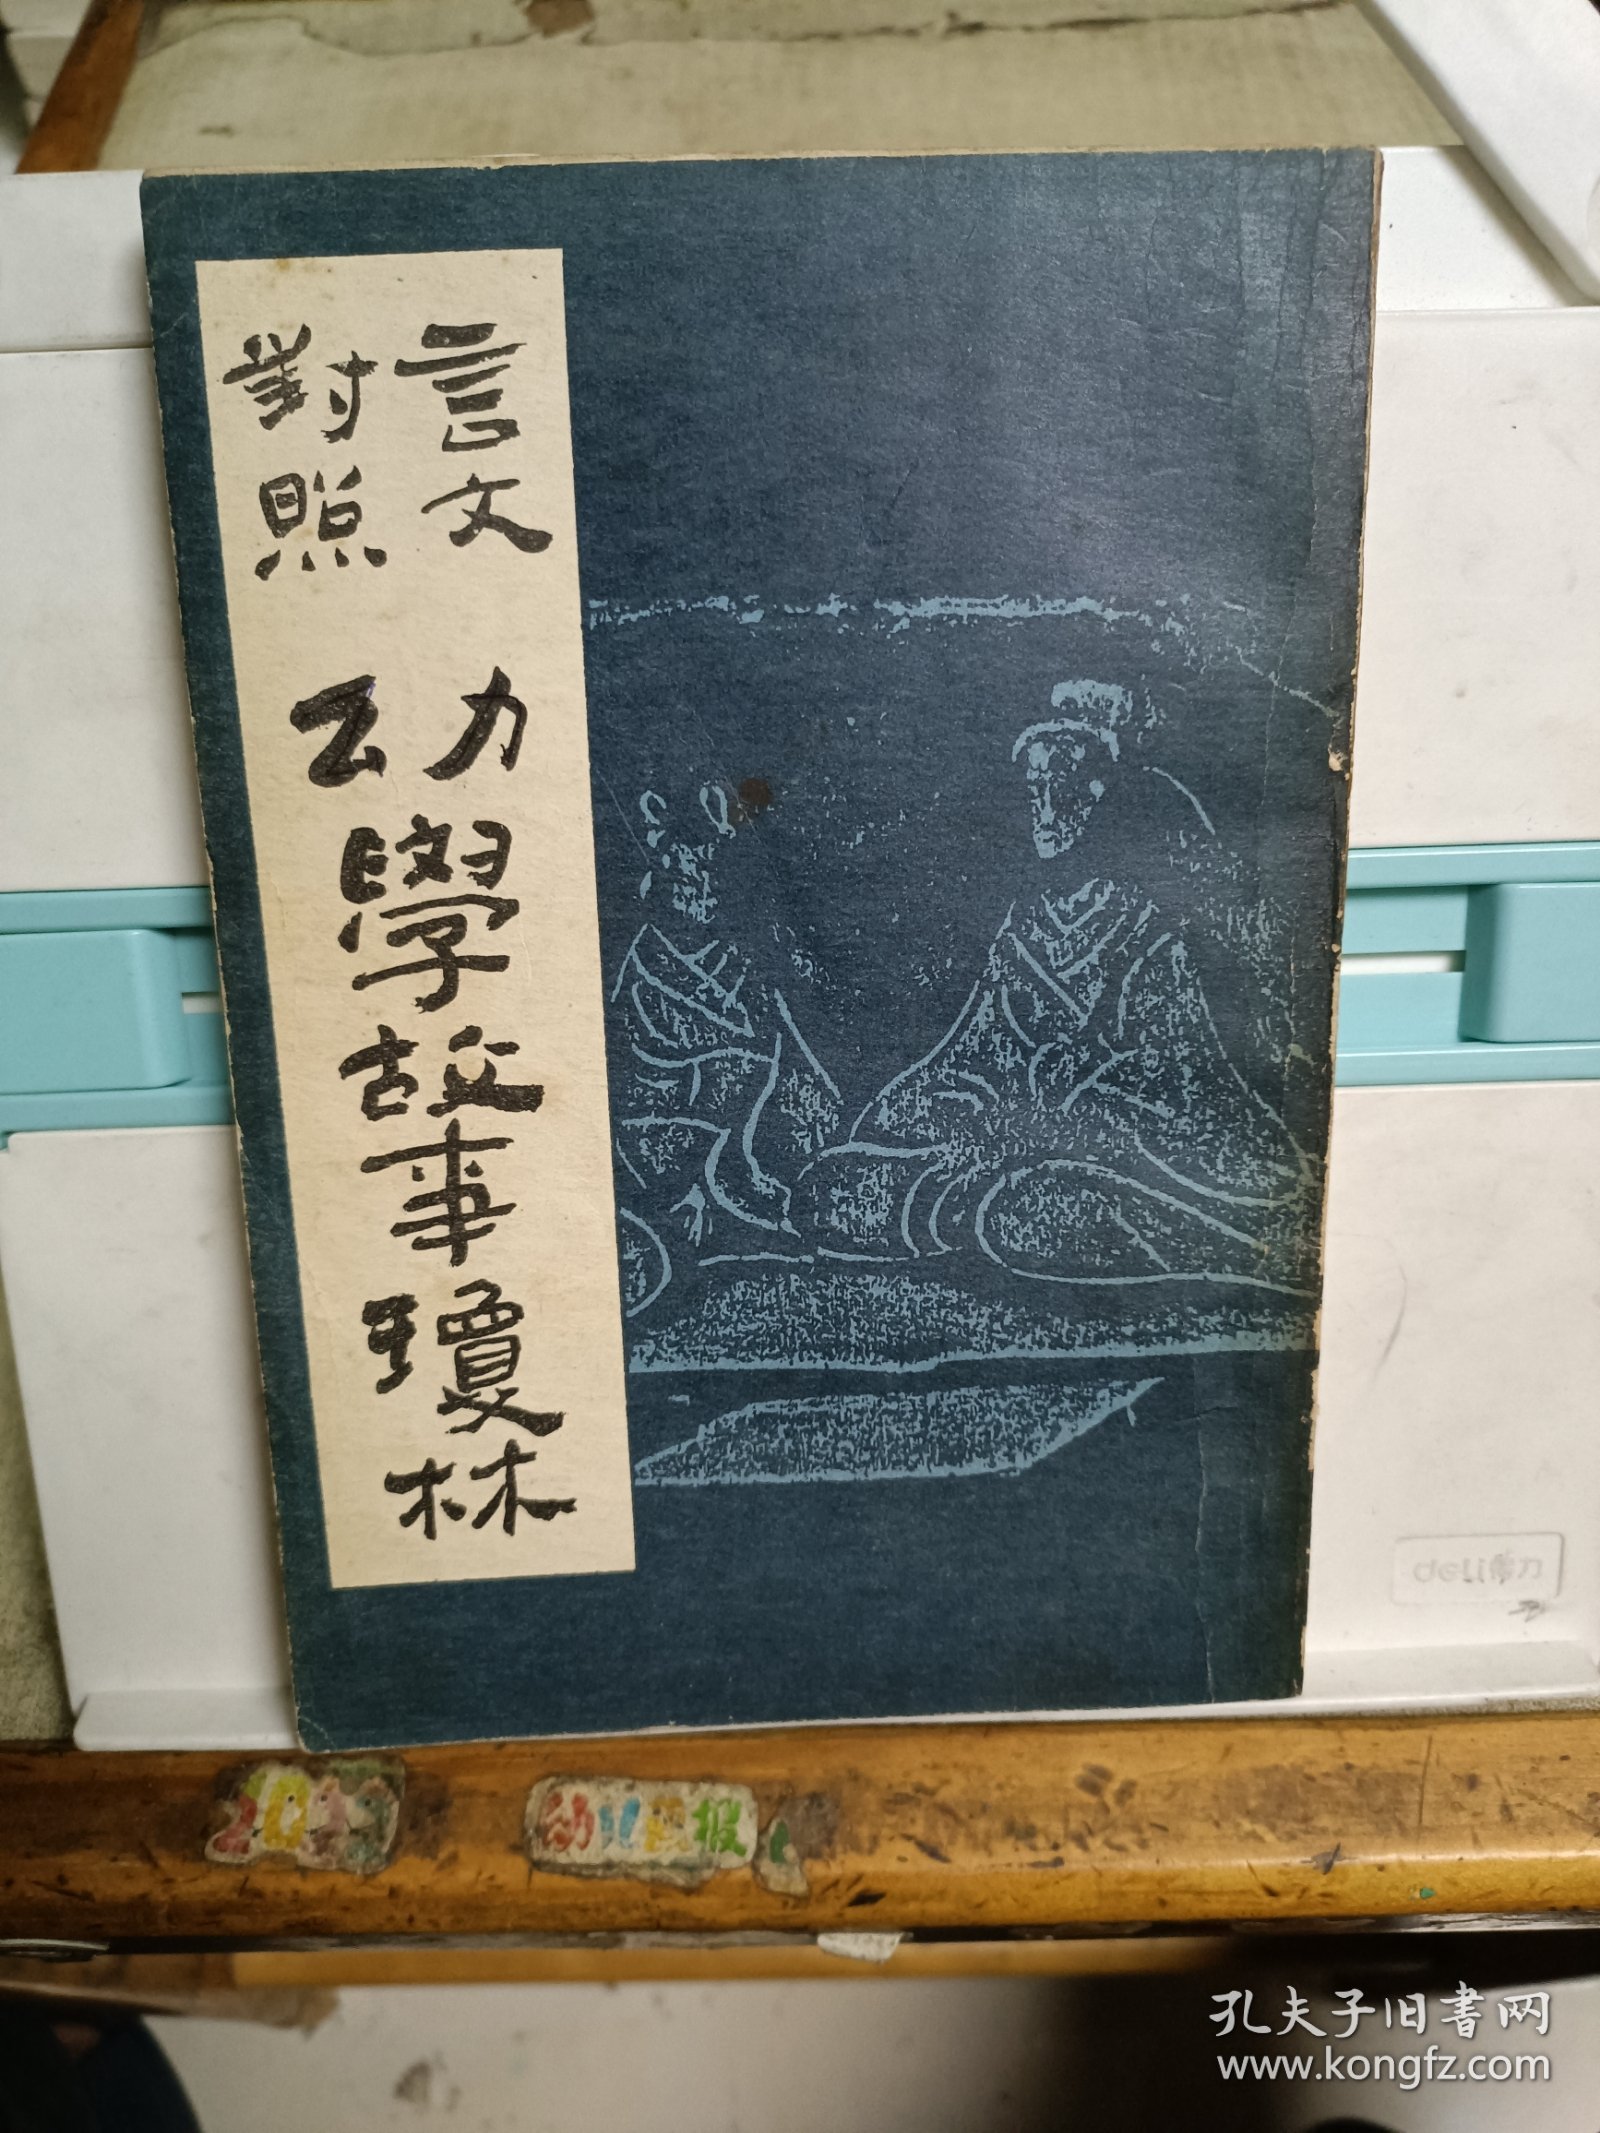 言文
對照
幼學故事瓊林
deli得力
幼儿画报
孔夫子旧书网
www.kongfz.com